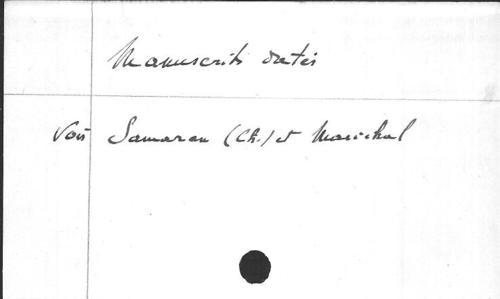 Manuscrits datés
Voir Samaran (Ch.) et Marichal